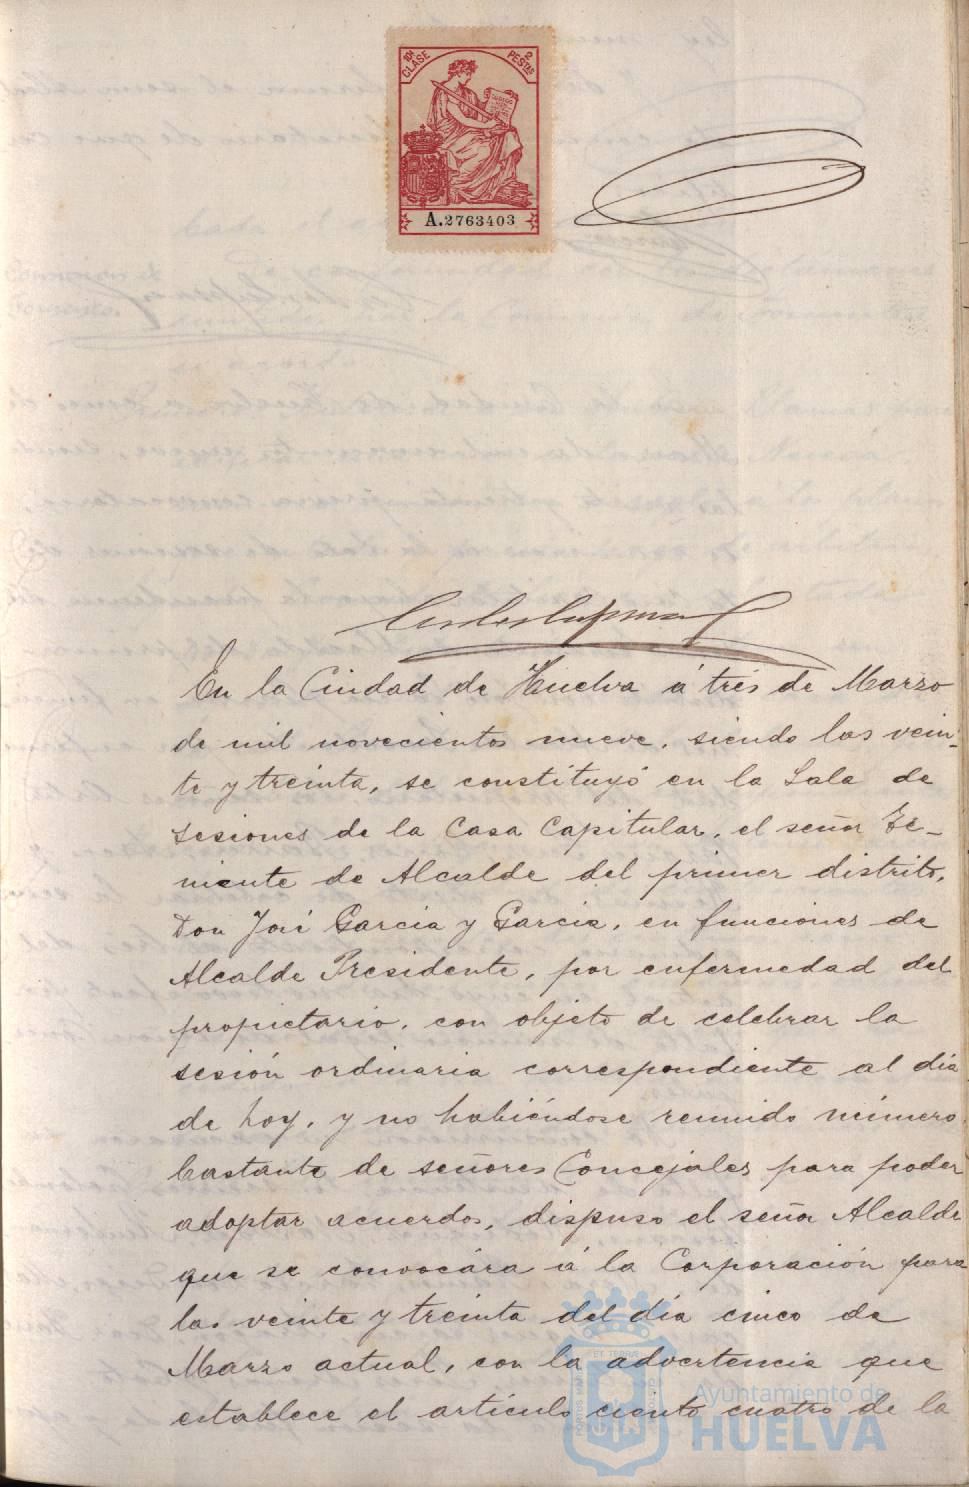 10ª CLASE 2 PESTAS
A.2763403
En la Ciudad de Huelva á tres de Marzo
de mil novecientos nueve, siendo las vein-
te y treinta, se constituyó en la Sala de
Sesiones de la Casa Capitular, el señor Te-
niente de Alcalde del primer distrito,
Don José García y García, en funciones de
Alcalde Presidente, por enfermedad del
propietario, con objeto de celebrar la
sesión ordinaria correspondiente al día
de hoy, y no habiéndose reunido número
bastante de señores Concejales para poder
adoptar acuerdos, dispuso el señor Alcalde
que se convocára á la Corporación para
las veinte y treinta del día cinco de
Marzo actual, con la advertencia que
establece el artículo ciento cuatro de la
Ayuntamiento de
HUELVA